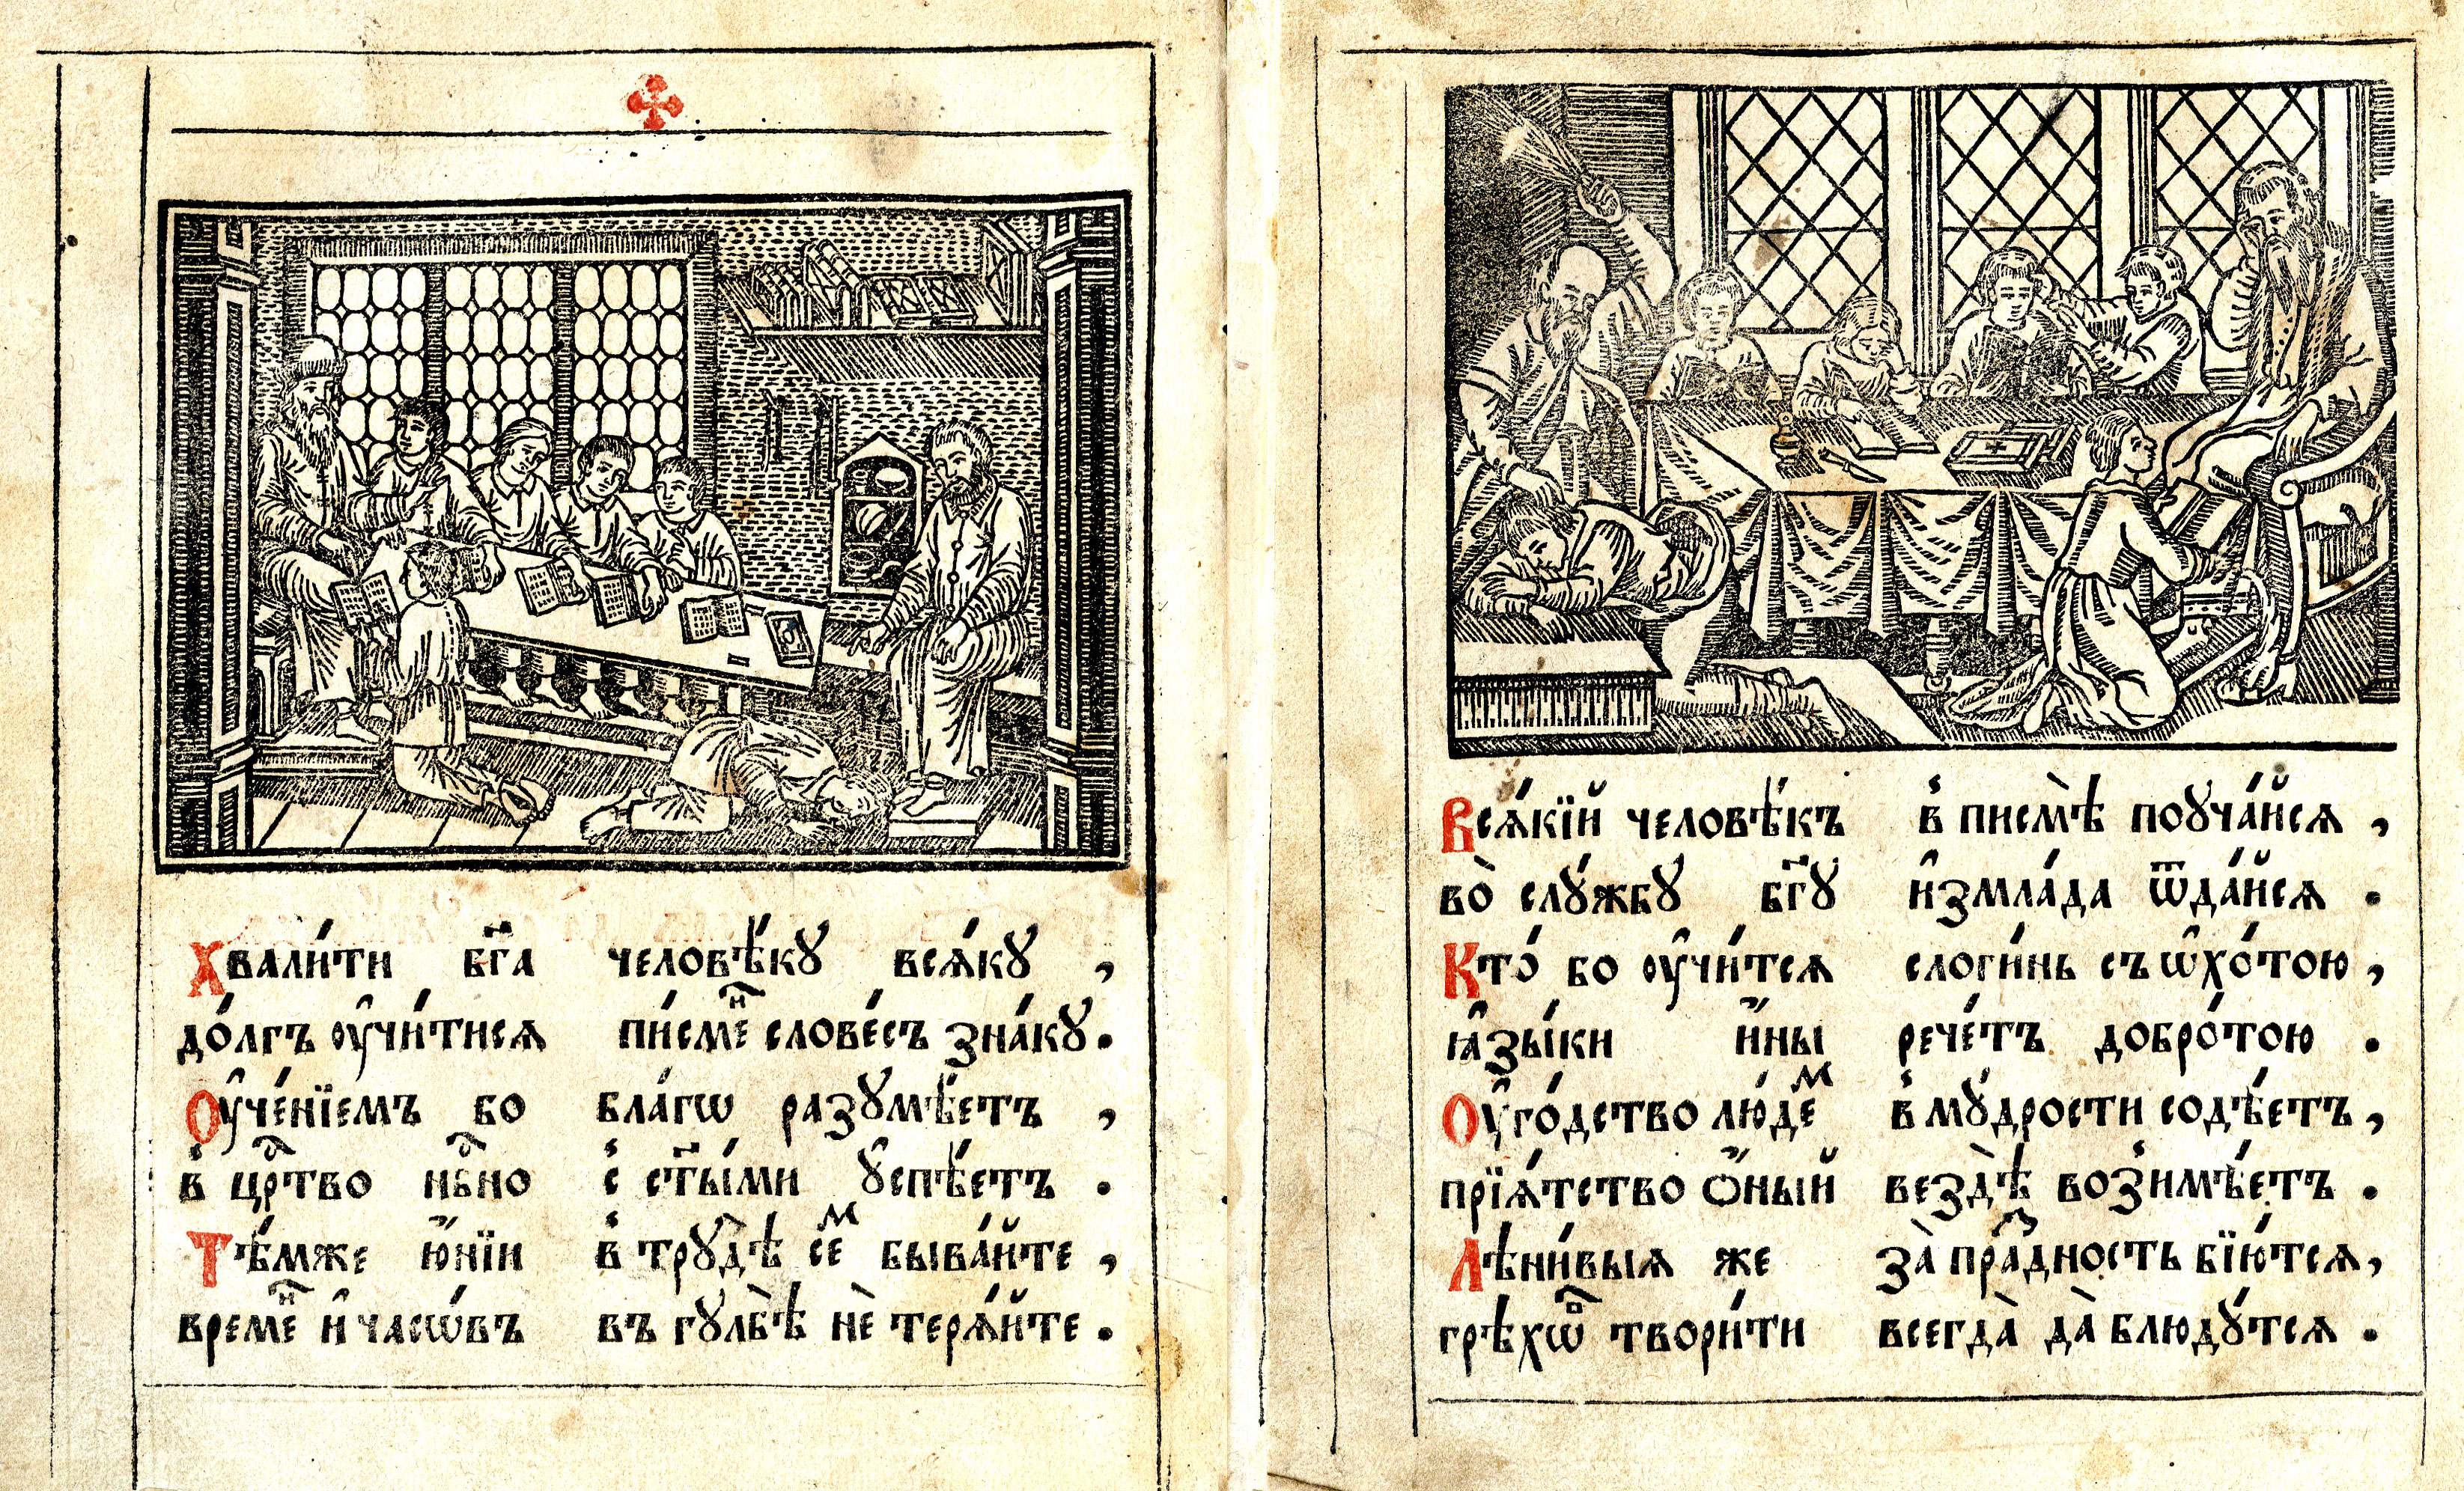 Хвали́ти бг҃а человѣ́ку вся́ку ,
до́лгъ ѹ҆чи́тися пи́смеⷩ҇ слове́съ зна́ку.
Оу҆че́нїемъ бо бла́гѡ разꙋмѣ́етъ ,
в̾ црⷭ҇тво нбⷭ҇но с̾ ст҃ы́ми ᲂу҆спѣ́етъ .
Тѣ́мже ю҆́нїи в̾ трꙋдѣ̀ сеⷨ быва́йте ,
времеⷩ҇ и҆ часѡ́въ въ гꙋльбѣ̀ нѐ теря́йте .
Вся́кїй человѣ́къ в̾ писмѣ̀ поꙋча́йся ,
во̀ слꙋ́жбꙋ бг҃ꙋ и҆змла́да ѿда́йся .
Кто́ бо ѹ҆чи́тся слоги́нь съ ѡ҆хо́тою,
ꙗ҆зы́ки и҆́ны рече́тъ добро́тою .
Оу҆го́дство лю́деⷨ в̾ мꙋ́дрости содѣ́етъ,
прїѧ́тство о҆́ный вездѣ̀ возимѣ́етъ .
Лѣни́выя же за̀ праⷥ҇дность бїю́тся,
грѣхѡⷡ҇ твори́ти всегда̀ да̀ блюдꙋ́тся .